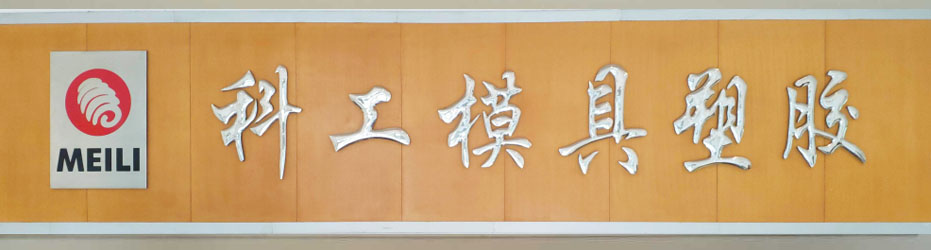 MEILI
科工模具塑胶